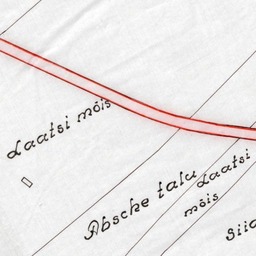 Laatsi mõis
Abscke talu
Laatsi
mõis